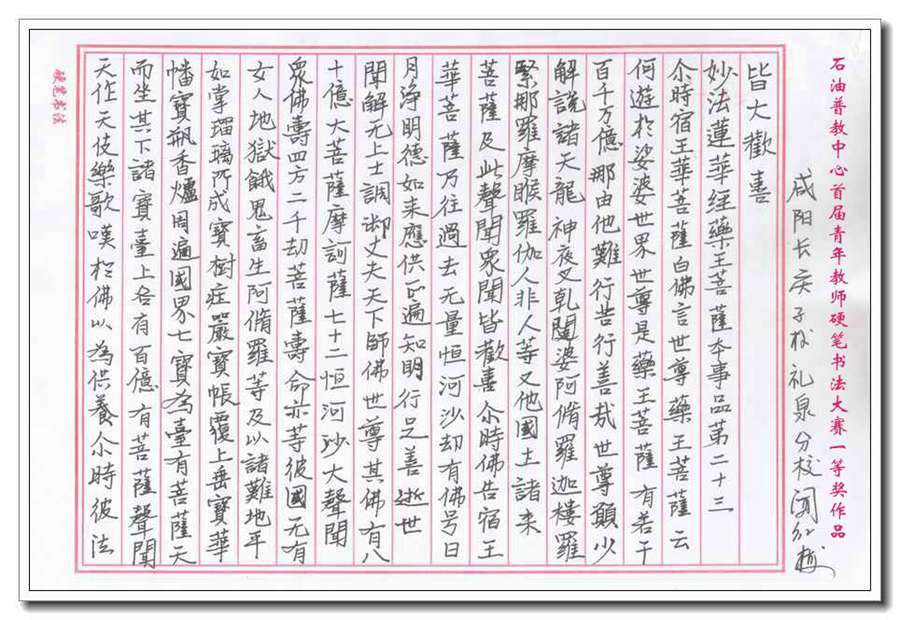 石油普教中心首届青年教师硬笔书法大赛一等奖作品
咸阳长庆子校礼泉分校
皆大歡喜
妙法蓮華经藥王菩薩本事品第二十三
尒時宿王華菩薩白佛言世尊藥王菩薩云
何遊於娑婆世界世尊是藥王菩薩有若干
百千万億那由他難行苦行善哉世尊願少
解説諸天龍神夜叉乾闥婆阿脩羅迦樓羅
緊那羅摩睺羅伽人非人等又他國土諸来
菩薩及此聲聞眾聞皆歡喜尒時佛告宿王
華菩薩乃往過去无量恒河沙劫有佛号日
月淨明德如来應供正遍知明行足善逝世
間解无上士調御丈夫天下師佛世尊其佛有八
十億大菩薩摩訶薩七十二恒河沙大聲聞
眾佛壽四万二千劫菩薩壽命亦等彼國无有
女人地獄餓鬼畜生阿脩羅等及以諸難地平
如掌瑠璃所成寶樹庄嚴寶帳覆上垂寶華
幡寶瓶香爐周遍國界七寶為臺有菩薩天
而坐其下諸寶臺上各有百億有菩薩聲聞
天作天伎樂歌嘆於佛以為供養尒時彼法
硬笔书法